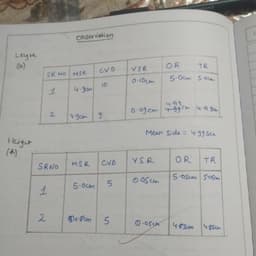 Observation
Length
(a)
SR NO MSR CVD VSR OR TR
1 4.9cm 10 0.10cm 5.0cm 5.0cm
2 4.9cm 9 0.09cm 4.99cm 4.99cm
Mean side = 4.995cm
Height
(h)
SRNO MSR CVD VSR OR TR
1 5.0cm 5 0.05cm 5.05cm 5.05cm
2 5 0.05cm